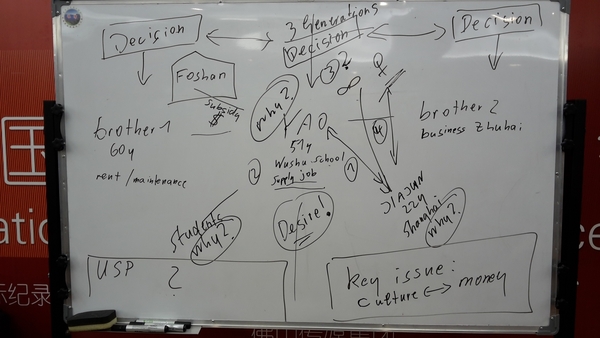 Decision
3 Generations
Decision
Decision
Foshan
Subsidy
$
why?
3
?
brother 1
60y
rent / maintenance
YAO
51y
Wushu-school
Supply job
2
1
4
brother 2
business Zhuhai
JIAJUN
22y
Shanghai
why?
Students
why?
Desire!
USP
?
key issue:
culture ↔ money
国